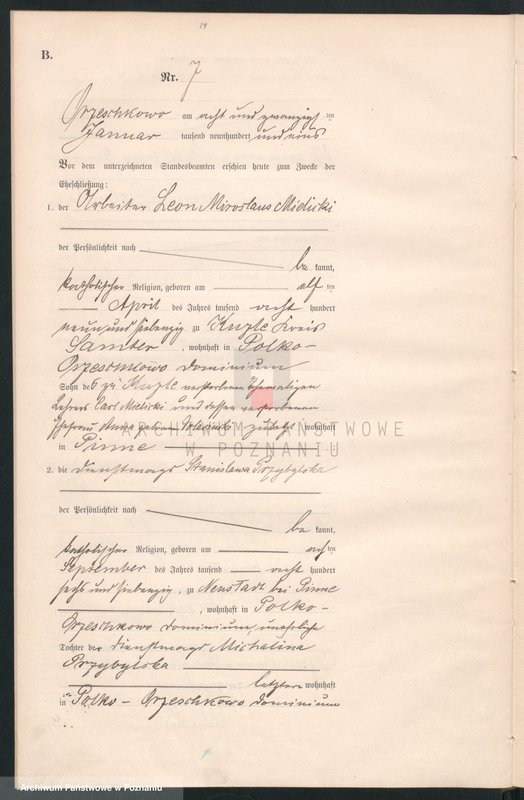 14
B.
Nr. 7
Orzeschkowo am acht und zwanzigsten
Januar tausend neunhundert und eins
Vor dem unterzeichneten Standesbeamten erschien heute zum Zwecke der
Eheschließung:
1. der Arbeiter Leon Miroslaus Mielicki
der Persönlichkeit nach
be kannt,
katholischer Religion, geboren am elf ten
April des Jahres tausend acht hundert
neun und siebenzig zu Kuzle Kreis
Samter, wohnhaft in Polko-
Orzeschkowo Dominium
Sohn des zu Kuzle verstorbenen ehemaligen
Lehrers Carl Mielicki und dessen verstorbenen
Ehefrau Anna geborn zuletzt wohnhaft
in Pinne
ARCHIWUM PAŃSTWOWE
W POZNANIU
2. die Dienstmagd Stanislawa Przybylska
der Persönlichkeit nach
be kannt,
katholischer Religion, geboren am ach ten
September des Jahres tausend acht hundert
sechs und siebenzig, zu Neustadt bei Pinne
, wohnhaft in Polko-
Orzeschkowo Dominium, uneheliche
Tochter der Dienstmagd Michalina
Przybylska
letztere wohnhaft
in Polko-Orzeschkowo Dominium
Archiwum Państwowe w Poznaniu